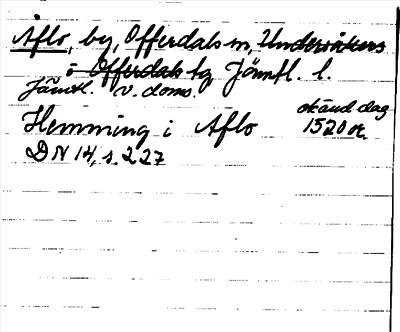 Aflo, by, Offerdals sn, Undersåkers
o Offerdals tg Jämtl. l.
Jämtl. v. doms.
Hemming i Aflo okänd dag
1520 or.
DN 14, s. 227